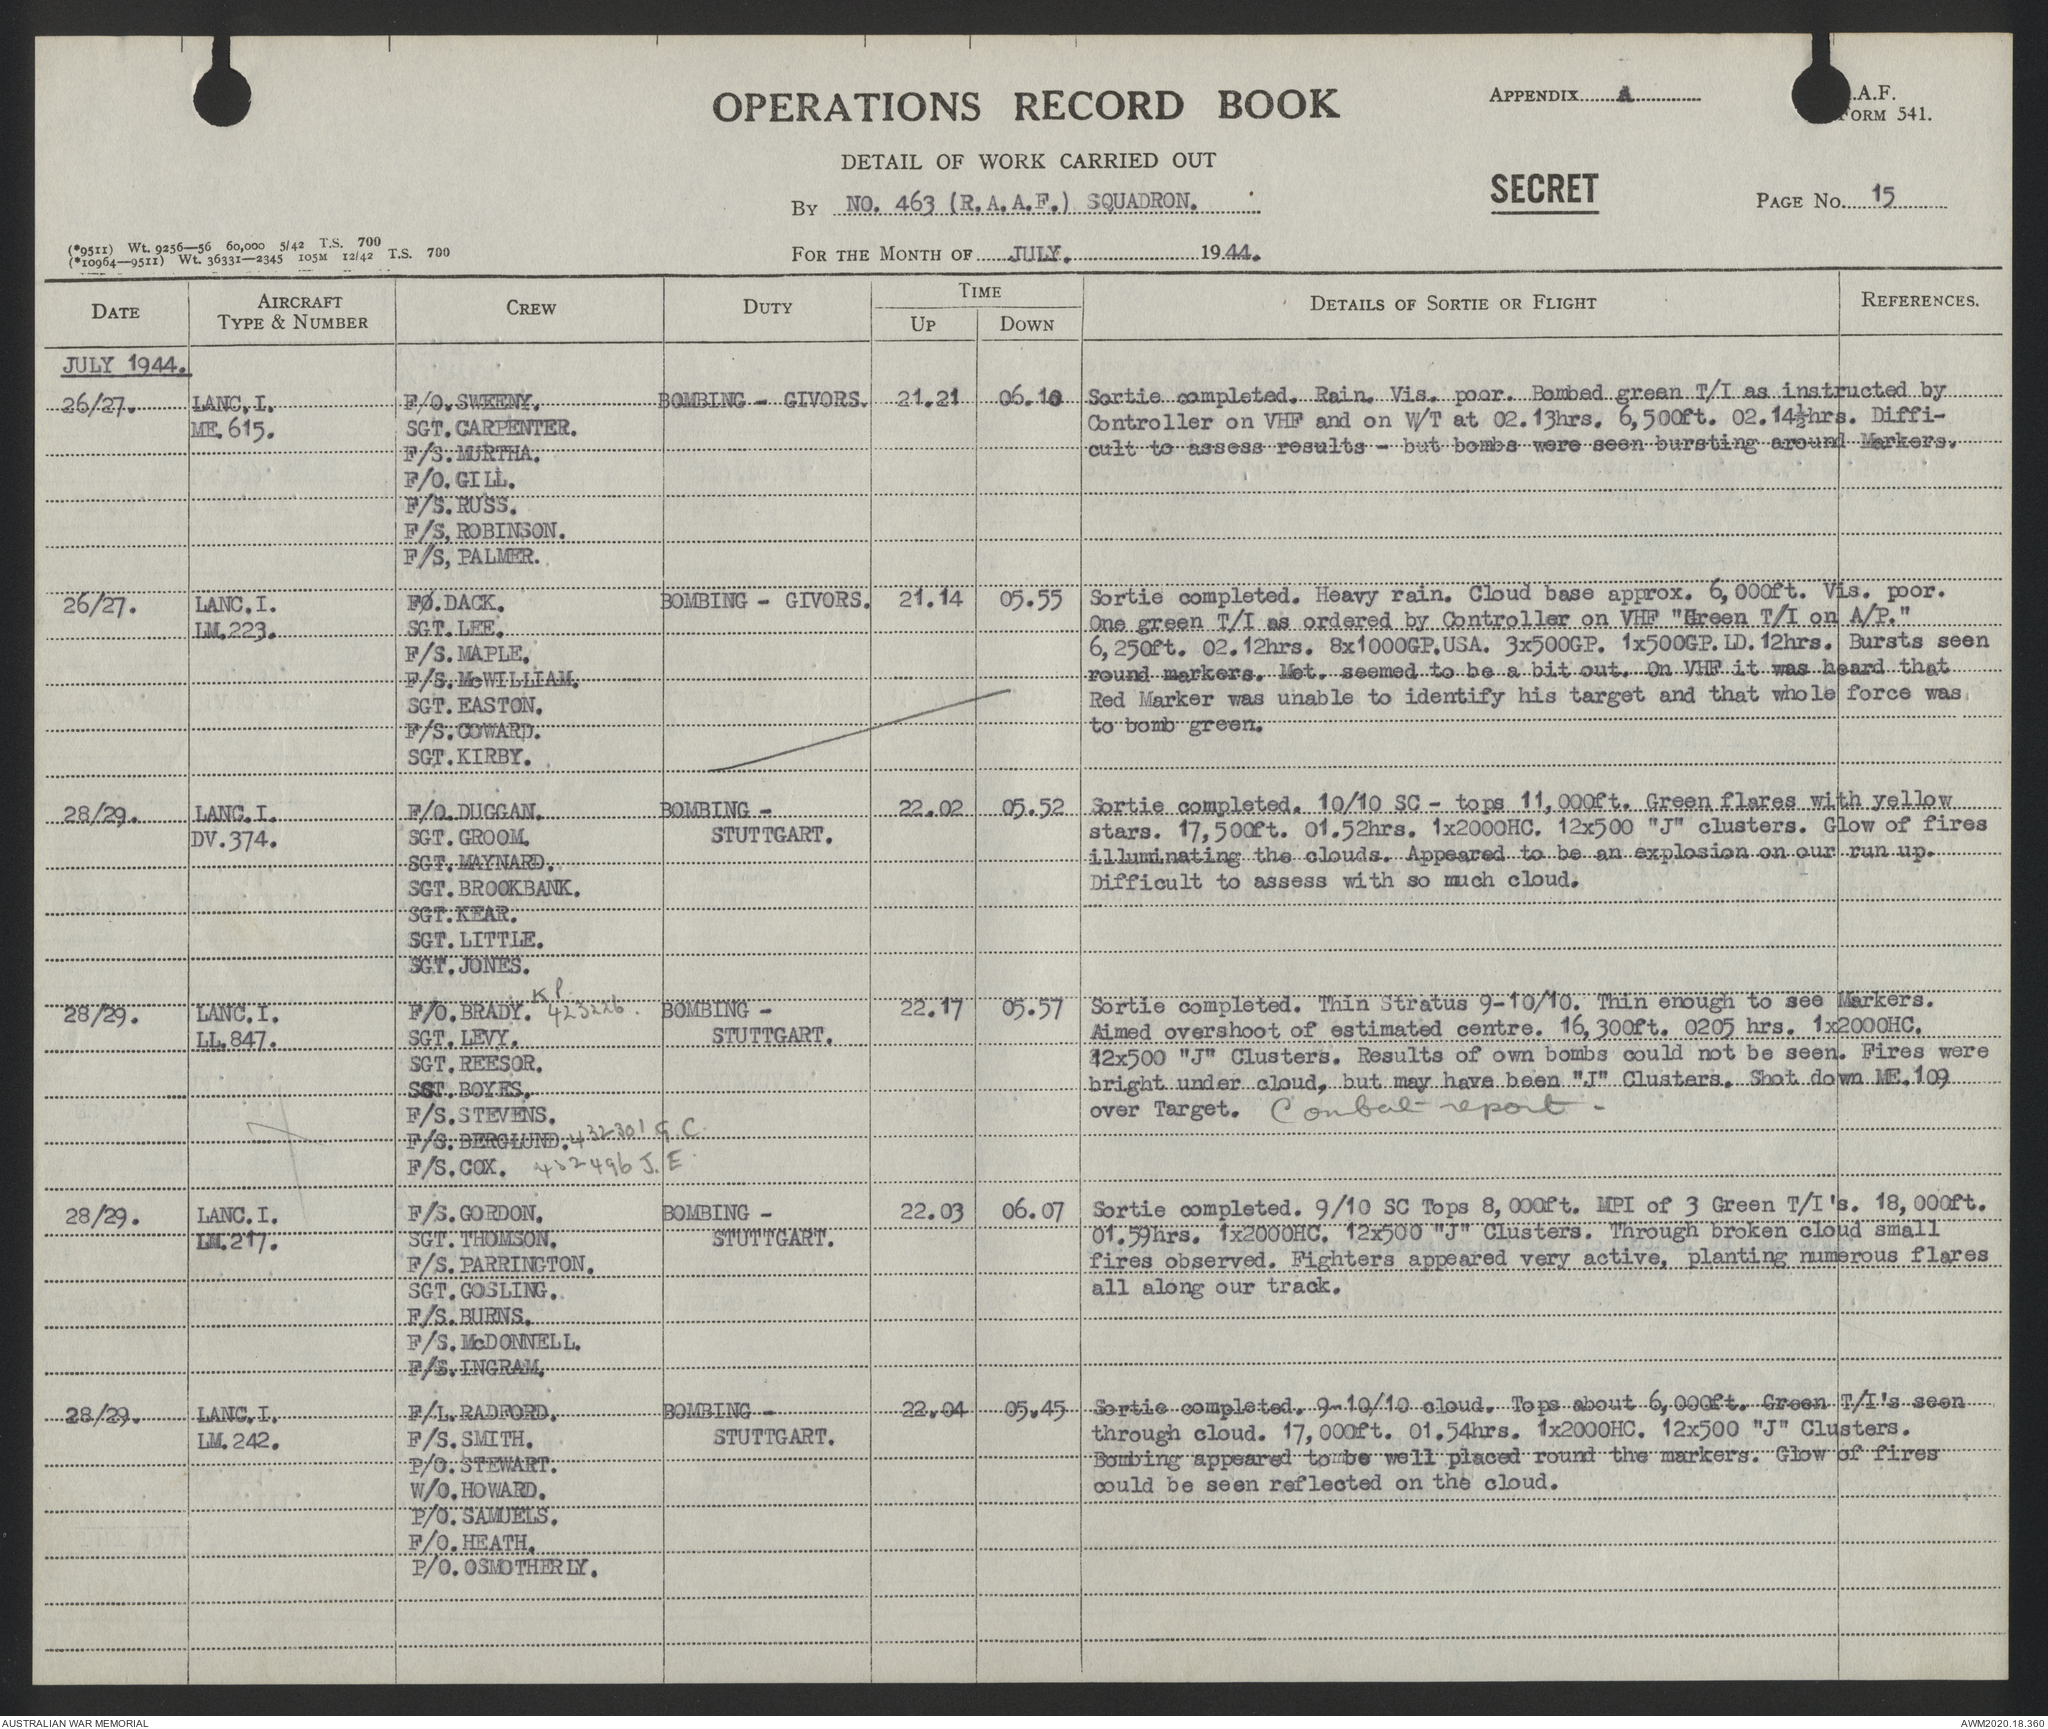 OPERATIONS RECORD BOOK
APPENDIX A
.A.F.
FORM 541.
DETAIL OF WORK CARRIED OUT
SECRET
By NO. 463 (R.A.A.F.) SQUADRON.
PAGE No. 15
(*9511) Wt. 9256—56 60,000 5/42 T.S. 700
(*10964—9511) Wt. 36331—2345 105M 12/42 T.S. 700
FOR THE MONTH OF JULY. 1944.
DATE
AIRCRAFT TYPE & NUMBER
CREW
DUTY
TIME
UP
DOWN
DETAILS OF SORTIE OR FLIGHT
REFERENCES.
JULY 1944.
26/27. LANC.I. F/O.SWEENY. BOMBING - GIVORS. 21.21 06.10 Sortie completed. Rain. Vis. poor. Bombed green T/I as instructed by
ME.615. SGT.CARPENTER. Controller on VHF and on W/T at 02.13hrs. 6,500ft. 02.14½hrs. Diffi-
F/S.MURTHA. cult to assess results - but bombs were seen bursting around Markers.
F/O.GILL.
F/S.RUSS.
F/S,ROBINSON.
F/S,PALMER.
26/27. LANC.I. FØ.DACK. BOMBING - GIVORS. 21.14 05.55 Sortie completed. Heavy rain. Cloud base approx. 6,000ft. Vis. poor.
LM.223. SGT.LEE. One green T/I as ordered by Controller on VHF "Green T/I on A/P."
F/S.MAPLE. 6,250ft. 02.12hrs. 8x1000GP.USA. 3x500GP. 1x500GP.LD.12hrs. Bursts seen
F/S.McWILLIAM. round markers. Met. seemed to be a bit out. On VHF it was heard that
SGT.EASTON. Red Marker was unable to identify his target and that whole force was
F/S.COWARD. to bomb green.
SGT.KIRBY.
28/29. LANC.I. F/O.DUGGAN. BOMBING - 22.02 05.52 Sortie completed. 10/10 SC - tops 11,000ft. Green flares with yellow
DV.374. SGT.GROOM. STUTTGART. stars. 17,500ft. 01.52hrs. 1x2000HC. 12x500 "J" clusters. Glow of fires
SGT.MAYNARD. illuminating the clouds. Appeared to be an explosion on our run up.
SGT.BROOKBANK. Difficult to assess with so much cloud.
SGT.KEAR.
SGT.LITTLE.
SGT.JONES.
28/29. LANC.I. F/O.BRADY. K P. 423226. BOMBING - 22.17 05.57 Sortie completed. Thin Stratus 9-10/10. Thin enough to see Markers.
LL.847. SGT.LEVY. STUTTGART. Aimed overshoot of estimated centre. 16,300ft. 0205 hrs. 1x2000HC.
SGT.REESOR. 12x500 "J" Clusters. Results of own bombs could not be seen. Fires were
SGT.BOYES. bright under cloud, but may have been "J" Clusters. Shot down ME.109
F/S.STEVENS. over Target. Combat report -
F/S.BERGLUND. 432301 G.C.
F/S.COX. 432496 J.E.
28/29. LANC.I. F/S.GORDON. BOMBING - 22.03 06.07 Sortie completed. 9/10 SC Tops 8,000ft. MPI of 3 Green T/I's. 18,000ft.
LM.217. SGT.THOMSON. STUTTGART. 01.59hrs. 1x2000HC. 12x500 "J" Clusters. Through broken cloud small
F/S.PARRINGTON. fires observed. Fighters appeared very active, planting numerous flares
SGT.GOSLING. all along our track.
F/S.BURNS.
F/S.McDONNELL.
F/S.INGRAM.
28/29. LANC.I. F/L.RADFORD. BOMBING - 22.04 05.45 Sortie completed. 9-10/10 cloud. Tops about 6,000ft. Green T/I's seen
LM.242. F/S.SMITH. STUTTGART. through cloud. 17,000ft. 01.54hrs. 1x2000HC. 12x500 "J" Clusters.
P/O.STEWART. Bombing appeared to be well placed round the markers. Glow of fires
W/O.HOWARD. could be seen reflected on the cloud.
P/O.SAMUELS.
F/O.HEATH.
P/O.OSMOTHERLY.
AUSTRALIAN WAR MEMORIAL
AWM2020.18.360